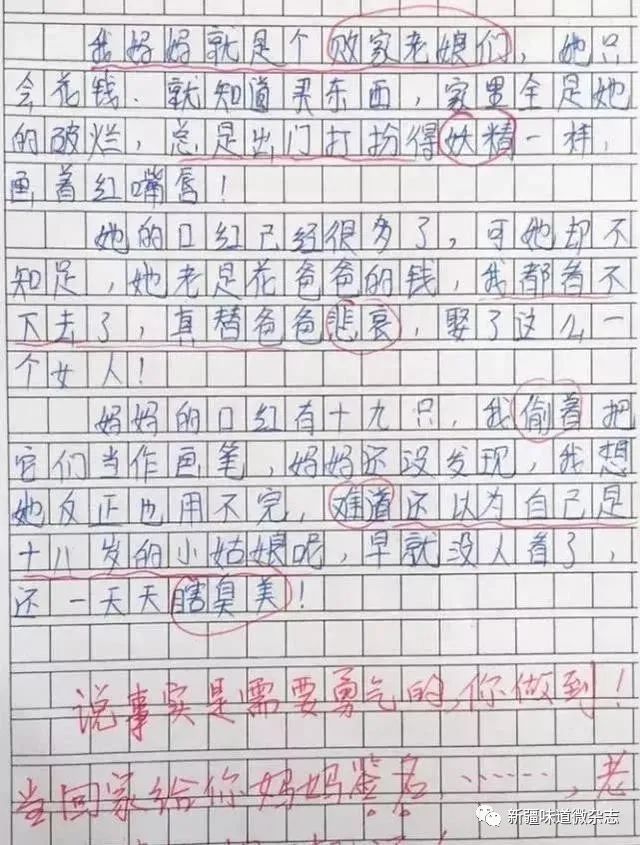 我妈妈就是个败家老娘们，她只
会花钱．就知道买东西，家里全是她
的破烂，总是出门打扮得妖精一样，
画着红嘴唇！
她的口红已经很多了，可她却不
知足，她老是花爸爸的钱，我都看不
下去了，真替爸爸悲哀，娶了这么一
个女人！
妈妈的口红有十九只，我偷着把
它们当作画笔，妈妈还没发现，我想
她反正也用不完，难道还以为自己是
十八岁的小姑娘呢，早就没人看了，
还一天天瞎臭美！
说事实是需要勇气的，你做到！
当回家给你妈妈签名……，老
新疆味道微杂志